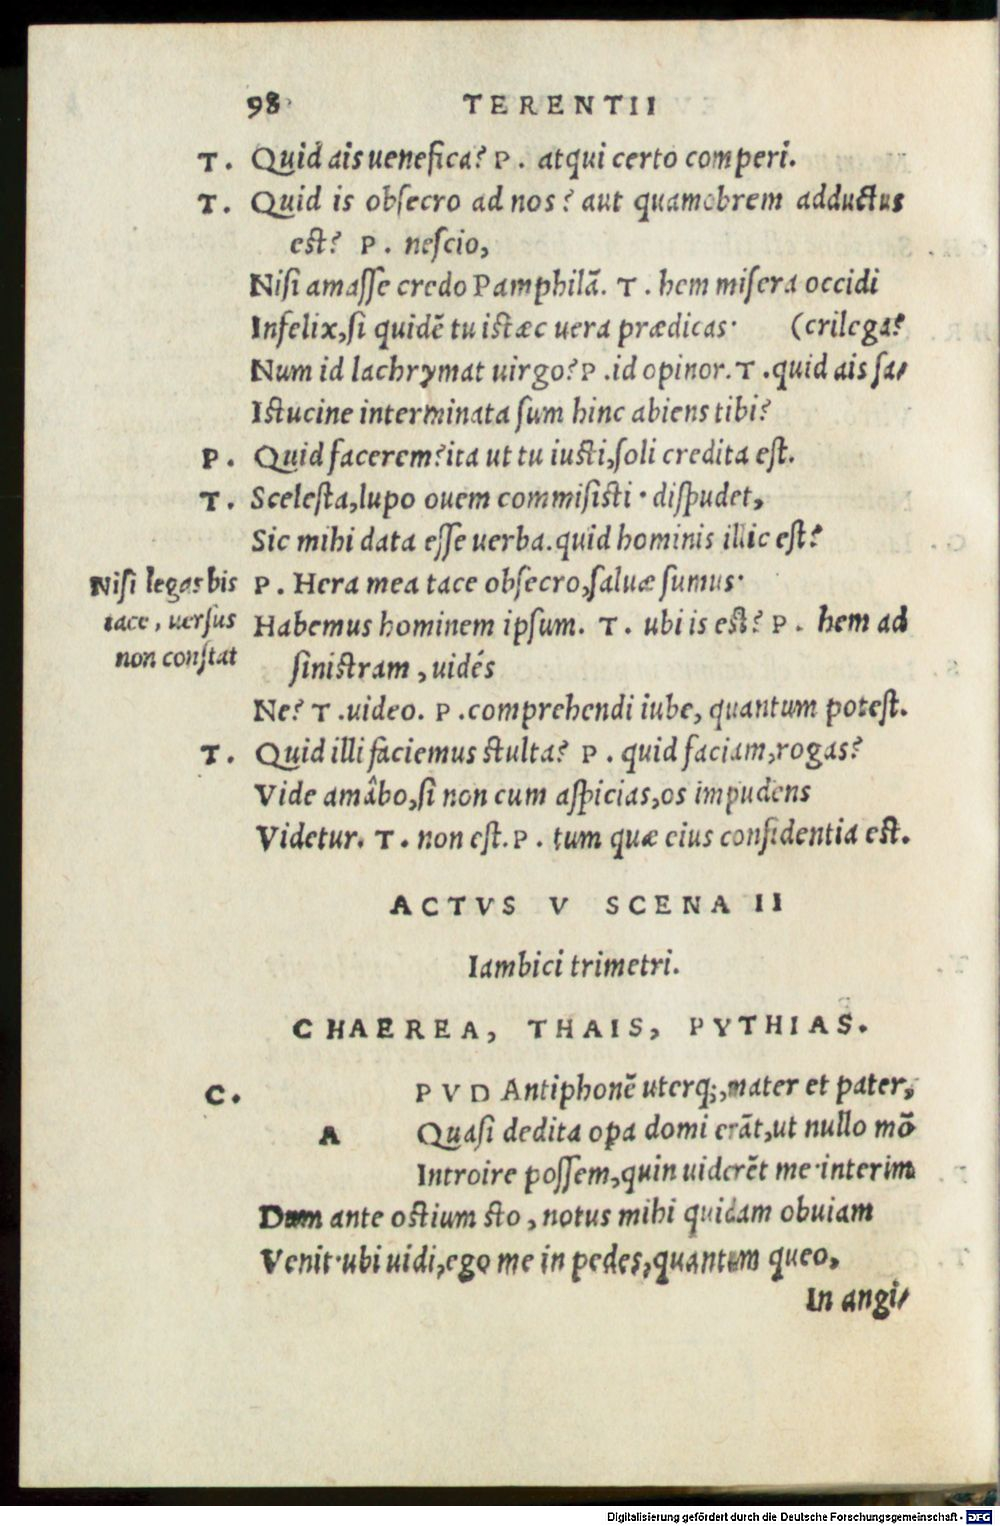 98 TERENTII
T. Quid ais uenefica? P. atqui certo comperi.
T. Quid is obsecro ad nos? aut quamobrem adductus
est? P. nescio,
Nisi amasse credo Pamphilã. T. hem misera occidi
Infelix,si quidẽ tu istæc uera prædicas· (crilega?
Num id lachrymat uirgo? P. id opinor. T. quid ais sa-
Istucine interminata sum hinc abiens tibi?
P. Quid facerem? ita ut tu iusti,soli credita est.
T. Scelesta,lupo ouem commisisti· dispudet,
Sic mihi data esse uerba. quid hominis illic est?
Nisi legas bis
tace, uersus
non constat
P. Hera mea tace obsecro,saluæ sumus·
Habemus hominem ipsum. T. ubi is est? P. hem ad
sinistram, uidés
Ne? T. uideo. P. comprehendi iube, quantum potest.
T. Quid illi faciemus stulta? P. quid faciam,rogas?
Vide amâbo,si non cum aspicias,os impudens
Videtur. T. non est. P. tum quæ eius confidentia est.
ACTVS V SCENA II
Iambici trimetri.
CHAEREA, THAIS, PYTHIAS.
C. A PVD Antiphonẽ uterq;,mater et pater,
Quasi dedita opa domi erãt,ut nullo mõ
Introire possem,quin uiderẽt me·interim
Dum ante ostium sto, notus mihi quidam obuiam
Venit·ubi uidi,ego me in pedes,quantum queo,
In angi-
Digitalisierung gefördert durch die Deutsche Forschungsgemeinschaft - DFG